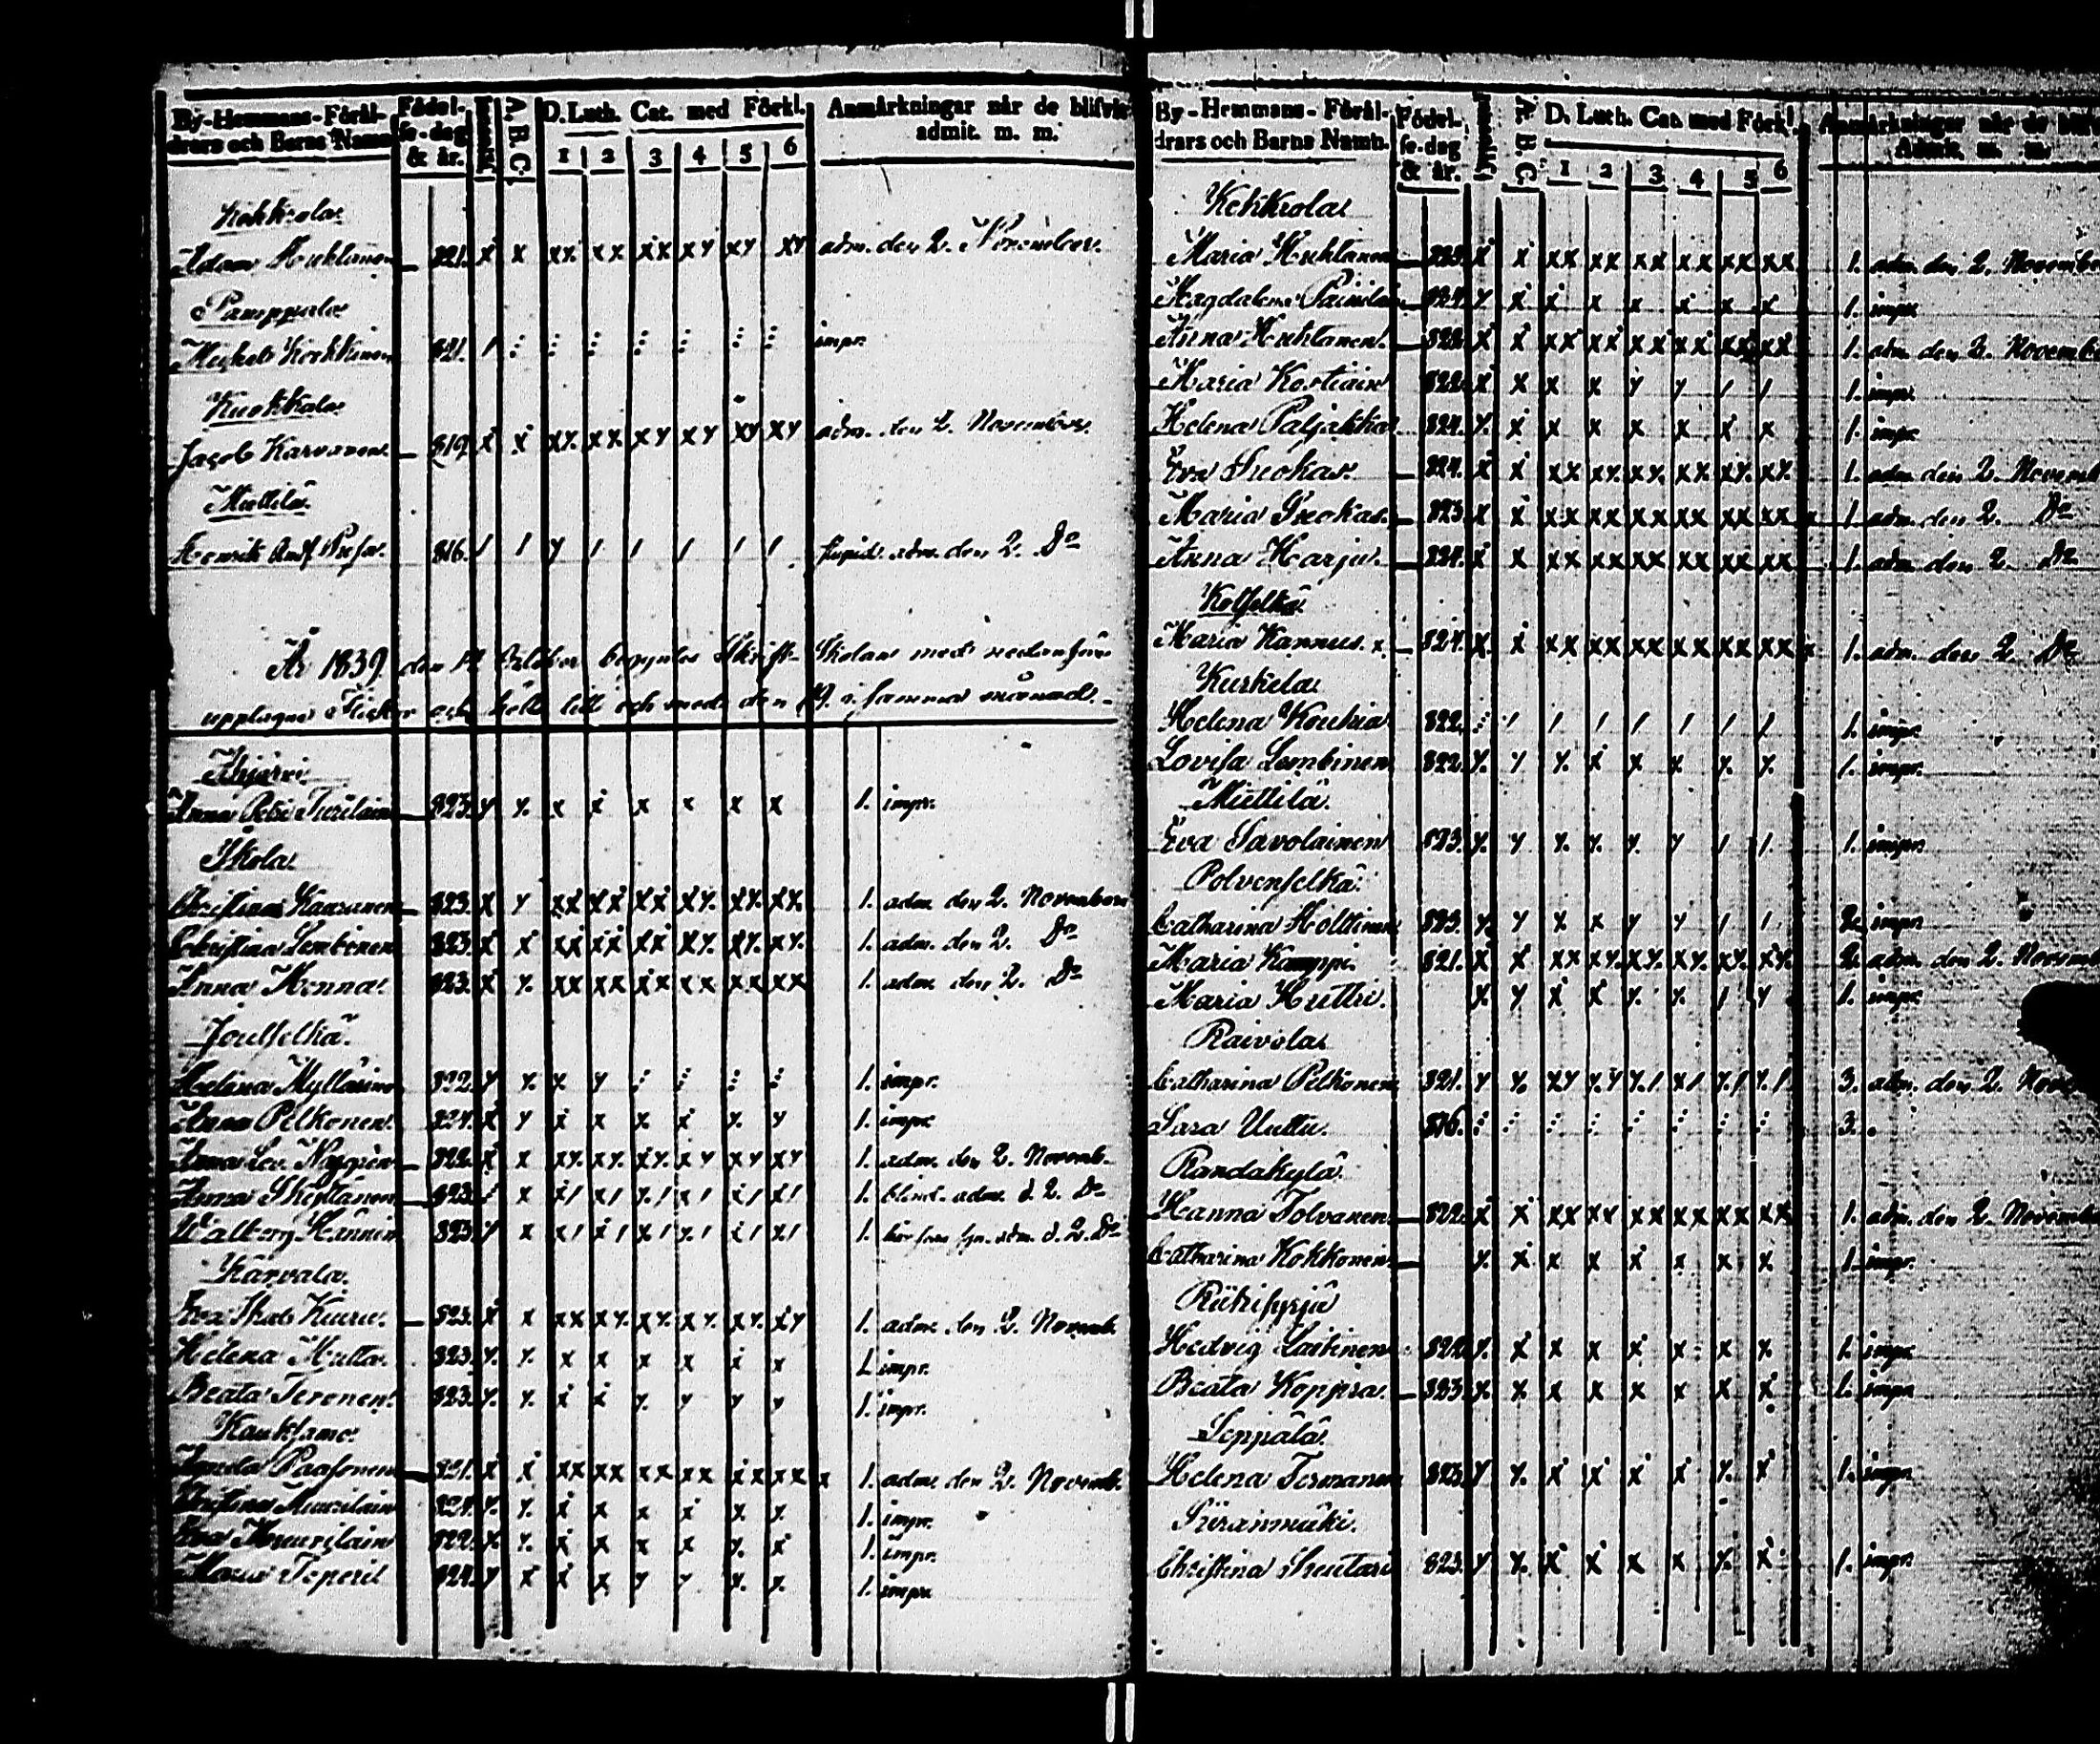 By-Hemmans-Föräl-
drars och Barns Namn
Födel-
se-dag
& år.
A. B. C.
D. Luth. Cat. med Förkl.
1 2 3 4 5 6
Anmärkningar når de blifvit
admit. m. m.
Kekkola.
Adam Huhtanen 821. x x xx xx xx xy xy xy adm. den 2. November.
Pamppala
Michel Kockkinen 821. / impr.
Kuokkala
Jacob Karvonen 819. x x xy. xx xy xy xy xy adm. den 2. November.
Miettilä.
Henrik 816. / / y / / / / / adm. den 2. Do
År 1839 den 14 October begyntes Skrift-Skolan med nedanföre
upptagne Flickor och hölls till och med den 19. i samma månad.
823. y y. x x x x x x 1. impr.
Ikola.
Christina Kauranen 823. x y xx xx xx xy. xy. xx. 1. adm. den 2. November
Christina Lembinen 823. x x xx xx xx xy. xy. xy. 1. adm. den 2. Do
Anna Henna. 823. x y. xx xx xx xx xx xx 1. adm. den 2. Do
Joutselkä.
Helena Myllärinen 822. y y. x y 1. impr.
Anna Pelkonen. 824. x y x x x x y. y 1. impr.
Anna 822. x x xy. xy. xy. xy xy xy 1. adm. den 2. Novemb.
Anna 823. x x/ x/ y./ x/ x/ x/ 1. blind. adm. d. 2. Do
Walborg Hännin 823. y x x/ x/ x/ y./ x/ x/ 1. adm. d. 2. Do
Kärvälä.
Eva 823. x x xx xy. xy. xy. xy. xy 1. adm. den 2. Novemb.
Helena 823. y. y. x x x x x x 1. impr.
Beata Teronen. 823. y. y. x x y. y y y 1. impr.
Kauksamo.
Paasonen 821. x x xx xx xx xx xx xx x 1. adm. den 2. Novemb.
Christina Muurilain 824. y. y. x x x x y. y. 1. impr.
Eva Muurilain 822. x y. x x x x y. x 1. impr.
Maria 824. y x x x y y y. y. 1. impr.
By-Hemmans-Föräl-
drars och Barns Namn.
Födel-
se-dag
& år.
A. B. C.
D. Luth. Cat. med Förkl.
1 2 3 4 5 6
Anmärkningar når de
Admit. m. m.
Kekkrola
Maria Huhtanen 823. x x xx xx xx xx xx xx 1. adm. den 2. Novemb
Magdalena 824. y x x x x x x x 1. impr.
Anna Huhtanen. 823. x x xx xx xx xx xx xx 1. adm. den 2. Novemb
Maria Kostiain 822. x x x x y y / / 1. impr.
Helena Paljakka 824. y. x x x x x x x 1. impr.
Eva Suokas. 824. x x xx xy. xy. xx xy. xy. 1. adm. den 2. Novem
Maria Suokas. 823. x x xx xx xx xx xx xx x 1. adm. den 2. Do
Anna Harju. 824. x x xx xx xx xx xx xx 1. adm. den 2. Do
Kolselkä
Maria Kannus. x 824. x x xx xx xx xx xx xx x 1. adm. den 2. Do
Kuskela
Helena Kouhia 822. / / / / / / / 1. impr.
Lovisa Lembinen 822. y. y y. x x x y. y. 1. impr.
Miettilä.
Eva Savolainen 823. y. y y. y. y. y / / 1. impr.
Polvenselkä.
Catharina Holttinen 823. y. y x x y y / / 2. impr.
Maria Kamppi. 821. x x xx xy. xy. xy. xy. xy. 2. adm. den 2. Novemb
Maria Huttu. x. y x x y. y. / y 1. impr.
Raivola
Catharina Pelkonen 821. y y. xy y.y y./ x/ y./ y./ 3. adm. den 2. Nov
Sara Uuttu. 816. 3.
Randakylä.
Hanna Tolvanen 822. x x xx xx xx xx xx xx 1. adm. den 2. Novemb
Catharina Kokkonen y. x x x x x x x. 1. impr.
Riikisyrjä
Hedvig Laitinen 822. y. x x x x x x y. 1. impr.
Beata Koppra. 823. x. x x x x x x x 1. impr.
Seppälä.
Helena Termanen 823. y y. x x x x y. x 1. impr.
Siiranmäki.
Christina Skuutari 823. y y. x x x x y. x 1. impr.